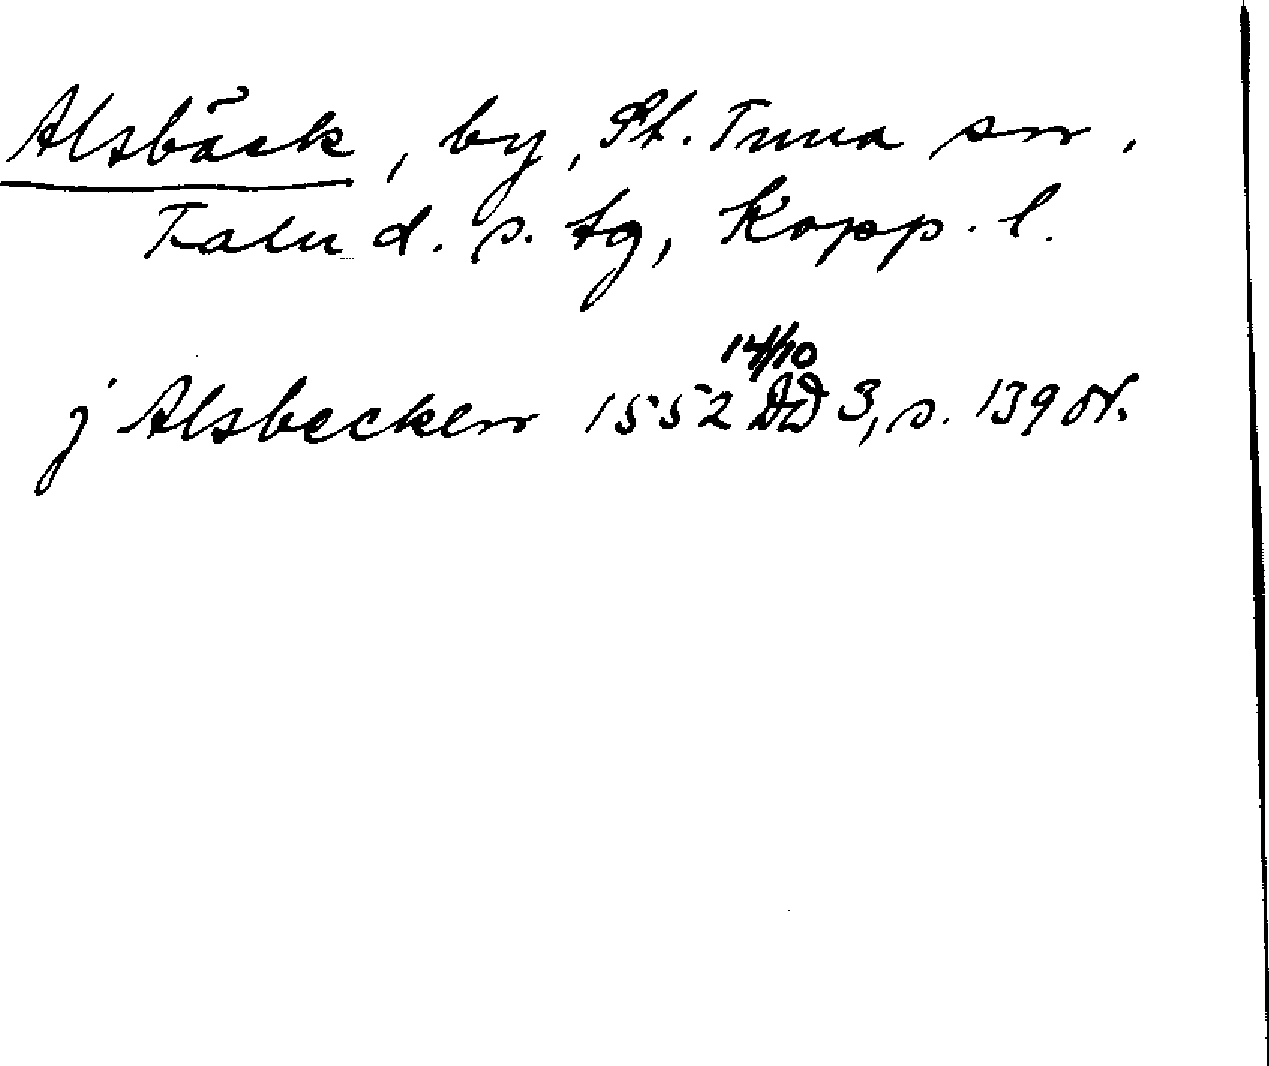 Alsbäck, by, St. Tuna sn.
Falu d. s. tg, Kopp. l.
14/10
j Alsbecken 1552 DD 3, s. 139 Or.